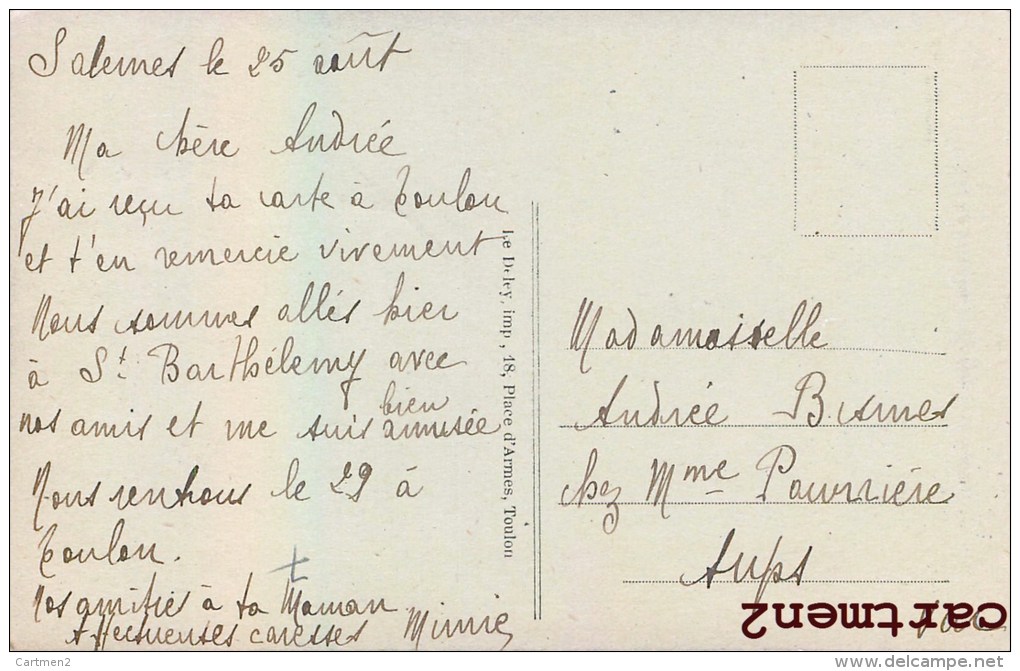 Salernes le 25 août
Ma chère Andrée
J'ai reçu ta carte à Toulon
et t'en remercie vivement
Nous sommes allés hier
à St. Barthélemy avec
nos amis et me suis bien amusée
Nous rentrons le 29 à
Toulon.
Nos amitiés à ta Maman
Affectueuses caresses Minnie
Le Deley, imp., 18, Place d'Armes, Toulon
Madamoiselle
Andrée Bismes
chez Mme Pourrière
Aups
Var
cartmen2
Cartmen2
http://www.delcampe.net